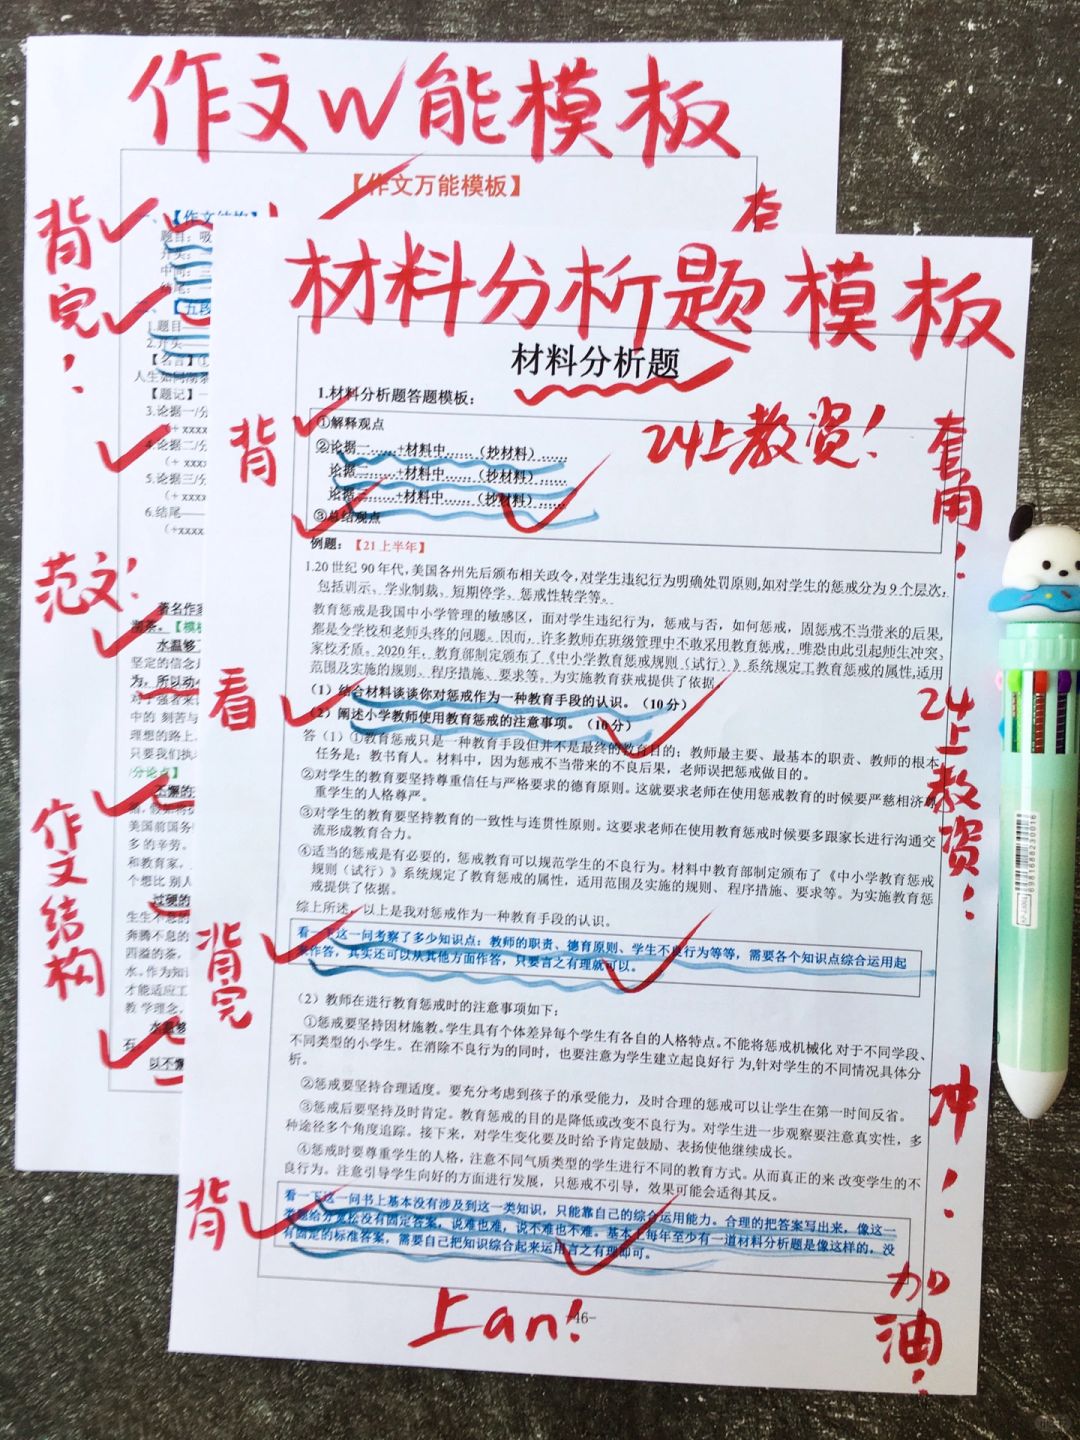 作文W能模板
【作文万能模板】
背完！
一、【作文结构】
题目：吸
开头：
中间：三
结尾：
二、【五段
1.题目
2.开头——
【名言】①
【题记】一
3.论据一/分
（+ xxxx
4.论据二/分
（+ xxx
5.论据三/分
（+ xxx
6.结尾——
（+xxxx
范文！
著名作家
水温够
坚定的信念
为，所以动
对于强者来
中的 刻苦与
理想的路上
只要我们执
/分论点】
不懈的
美国前国务
多的辛劳。
和教育家，
个想比 别人
过硬的
生生不息的
奔腾不息的
四溢的茶，
水,作为知
才能适应工
教 学理念，
水温够
石
以不懈
作文结构
套
材料分析题模板
材料分析题
24上教资！
背
1.材料分析题答题模板：
①解释观点
②论据一……+材料中……（抄材料）……
论据二……+材料中……（抄材料）……
论据三……+材料中……（抄材料）……
③总结观点
套用！
例题：【21上半年】
1.20世纪90年代，美国各州先后颁布相关政令，对学生违纪行为明确处罚原则,如对学生的惩戒分为9个层次，
包括训示、学业制裁、短期停学、惩戒性转学等。
教育惩戒是我国中小学管理的敏感区，面对学生违纪行为，惩戒与否，如何惩戒，因惩戒不当带来的后果，
都是令学校和老师头疼的问题。因而，许多教师在班级管理中不敢采用教育惩戒，唯恐由此引起师生冲突、
家校矛质。2020年，教育部制定颁布了《中小学教育惩戒规则（试行）》系统规定工教育惩戒的属性,适用
范围及实施的规则、程序措施、要求等。为实施教育获戒提供了依据
看
（1）结合材料谈谈你对惩戒作为一种教育手段的认识。（10分）
（2）阐述小学教师使用教育惩戒的注意事项。（10分）
答（1）①教育惩戒只是一种教育手段但并不是最终的教育目的；教师最主要、最基本的职责、教师的根本
任务是：教书育人。材料中，因为惩戒不当带来的不良后果，老师误把惩戒做目的。
②对学生的教育要坚持尊重信任与严格要求的德育原则。这就要求老师在使用惩戒教育的时候要严慈相济
重学生的人格尊严。
③对学生的教育要坚持教育的一致性与连贯性原则。这要求老师在使用教育惩戒时候要多跟家长进行沟通交
流形成教育合力。
④适当的惩戒是有必要的，惩戒教育可以规范学生的不良行为。材料中教育部制定颁布了《中小学教育惩戒
规则（试行）》系统规定了教育惩戒的属性，适用范围及实施的规则、程序措施、要求等。为实施教育惩
戒提供了依据。
综上所述，以上是我对惩戒作为一种教育手段的认识。
24上教资！
背完
看一下这一问考察了多少知识点：教师的职责、德育原则、学生不良行为等等，需要各个知识点综合运用起
来作答，其实还可以从其他方面作答，只要言之有理就可以。
（2）教师在进行教育惩戒时的注意事项如下：
①惩戒要坚持因材施教。学生具有个体差异每个学生有各自的人格特点。不能将惩戒机械化 对于不同学段、
不同类型的小学生。在消除不良行为的同时，也要注意为学生建立起良好行 为,针对学生的不同情况具体分
析。
②惩戒要坚持合理适度。要充分考虑到孩子的承受能力，及时合理的惩戒可以让学生在第一时间反省。
③惩戒后要坚持及时肯定。教育惩戒的目的是降低或改变不良行为。对学生进一步观察要注意真实性，多
种途径多个角度追踪。接下来，对学生变化要及时给予肯定鼓励、表扬使他继续成长。
④惩戒时要尊重学生的人格，注意不同气质类型的学生进行不同的教育方式。从而真正的来 改变学生的不
良行为。注意引导学生向好的方面进行发展，只惩戒不引导，效果可能会适得其反。
冲！
背
看一下这一问书上基本没有涉及到这一类知识，只能靠自己的综合运用能力。合理的把答案写出来，像这一
类题给分宽松没有固定答案，说难也难，说不难也不难。基本上每年至少有一道材料分析题是像这样的，没
有固定的标准答案，需要自己把知识综合起来运用言之有理即可。
加油！
上an！
-46-
6981688230016